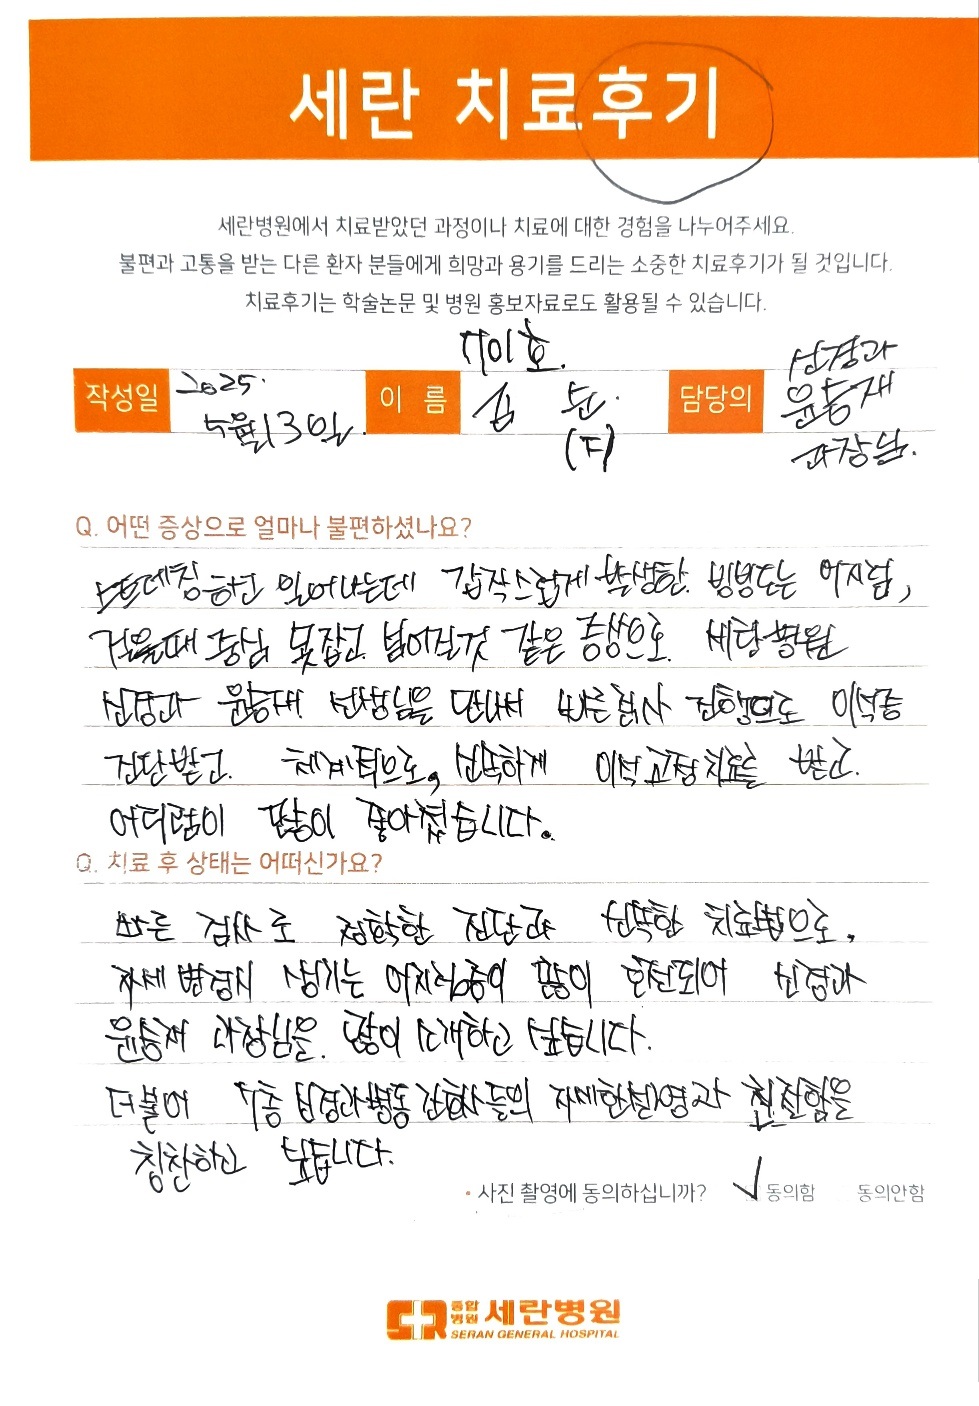 세란 치료후기
세란병원에서 치료받았던 과정이나 치료에 대한 경험을 나누어주세요.
불편과 고통을 받는 다른 환자 분들에게 희망과 용기를 드리는 소중한 치료후기가 될 것입니다.
치료후기는 학술논문 및 병원 홍보자료로도 활용될 수 있습니다.
작성일 2025. 5월 13일.
이 름 김
담당의 신경과 윤승재 과장님.
Q. 어떤 증상으로 얼마나 불편하셨나요?
하고 일어나는데 갑작스럽게 발생한 빙빙도는 어지럼,
걸을때 중심 못잡고 넘어질것 같은 증상으로 세란병원
신경과 윤승재 선생님을 만나서 빠른검사 진행으로 이석증
진단받고 체계적으로, 신속하게 이석고정치료를 받고
어지럼이 많이 좋아졌습니다.
Q. 치료 후 상태는 어떠신가요?
빠른 검사로 정확한 진단과 신속한 치료법으로,
자세변경시 생기는 어지럼증이 많이 호전되어 신경과
윤승재 과장님을 많이 소개하고 싶습니다.
더불어 7층 신경과병동 간호사들의 자세한설명과 친절함을
칭찬하고 싶습니다.
• 사진 촬영에 동의하십니까? ✓ 동의함 동의안함
종합병원 세란병원
SERAN GENERAL HOSPITAL